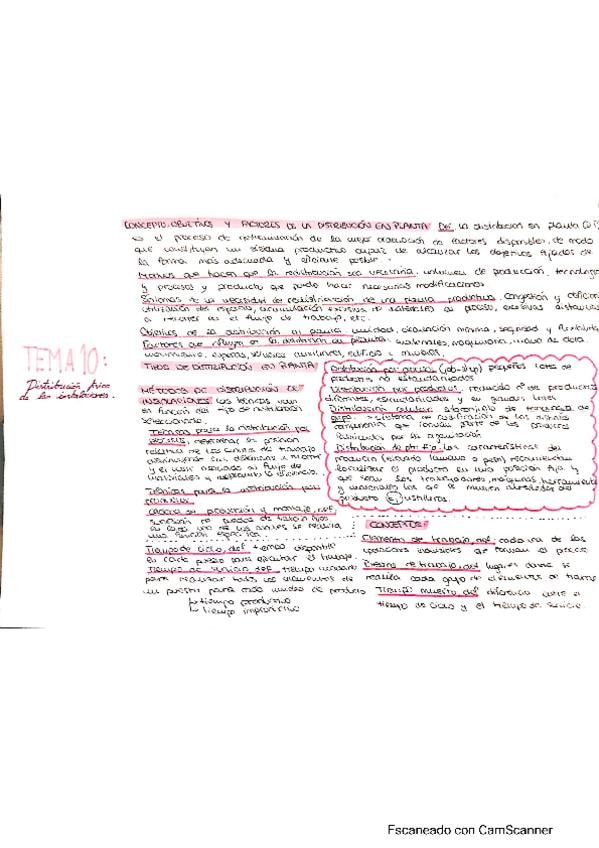 CONCEPTO, OBJETIVOS Y FACTORES DE LA DISTRIBUCIÓN EN PLANTA Def. la distribución en planta
es el proceso de determinación de la mejor ordenación de factores disponibles, de modo
que constituyan un sistema productivo capaz de alcanzar los objetivos fijados de
la forma más adecuada y eficiente posible.
Motivos que hacen que la redistribución sea necesaria: volumen de producción, tecnología
y procesos y producto que puede hacer necesarias modificaciones.
Síntomas de la necesidad de redistribución de una planta productiva. Congestión y deficiente
utilización del espacio, acumulación excesiva de materiales en proceso, excesivas distancias
a recorrer en el flujo de trabajo, etc.
Objetivos de la distribución en planta: unidad, circulación mínima, seguridad y flexibilidad
Factores que influyen en la distribución en planta: materiales, maquinaria, mano de obra
movimiento, esperas, servicios auxiliares, edificio y
TEMA 10:
Distribución física
de las instalaciones.
TIPOS DE DISTRIBUCIÓN EN PLANTA
Distribución por proceso (job-shop) pequeños lotes de
productos no estandarizados
Distribución por producto: reducido nº de productos
diferentes, estandarizados y en grandes lotes
Distribución celular: de tecnología de
grupo. → sistema de codificación de los distintos
componentes que forman parte de los productos
fabricados por la organización
Distribución de pto. fijo. las características del
producto (elevado tamaño o peso) recomiendan
localizar el producto en una posición fija y
que sean los trabajadores, máquinas, herramientas
y materiales los que se mueven alrededor del
producto Ej
MÉTODOS DE DISTRIBUCIÓN DE
INSTALACIONES las técnicas
en función del tipo de distribución
seleccionado.
Técnicas para la distribución por
proceso. determinar la posición
relativa de los centros de trabajo
disminuyendo las distancias a recorrer
y el coste asociado al flujo de
materiales y mejorando la eficiencia.
Técnicas para la distribución por
producto
Cadena de producción y montaje, def.
sucesión de puestos de trabajo fijos
en cada uno de los cuales se realiza
una función específica.
CONCEPTOS:
Elemento de trabajo, def. cada una de las
operaciones que forman el proceso
Puesto de trabajo, def. lugares donde se
realiza cada grupo de elementos de trabajo
Tiempo muerto, def. diferencia entre el
tiempo de ciclo y el tiempo de servicio.
Tiempo de ciclo, def. tiempo disponible
en cada puesto para ejecutar el trabajo.
Tiempo de servicio, def. tiempo necesario
para realizar todos los elementos de
un puesto para cada unidad de producto
↳ tiempo productivo
↳ tiempo improductivo
Escaneado con CamScanner